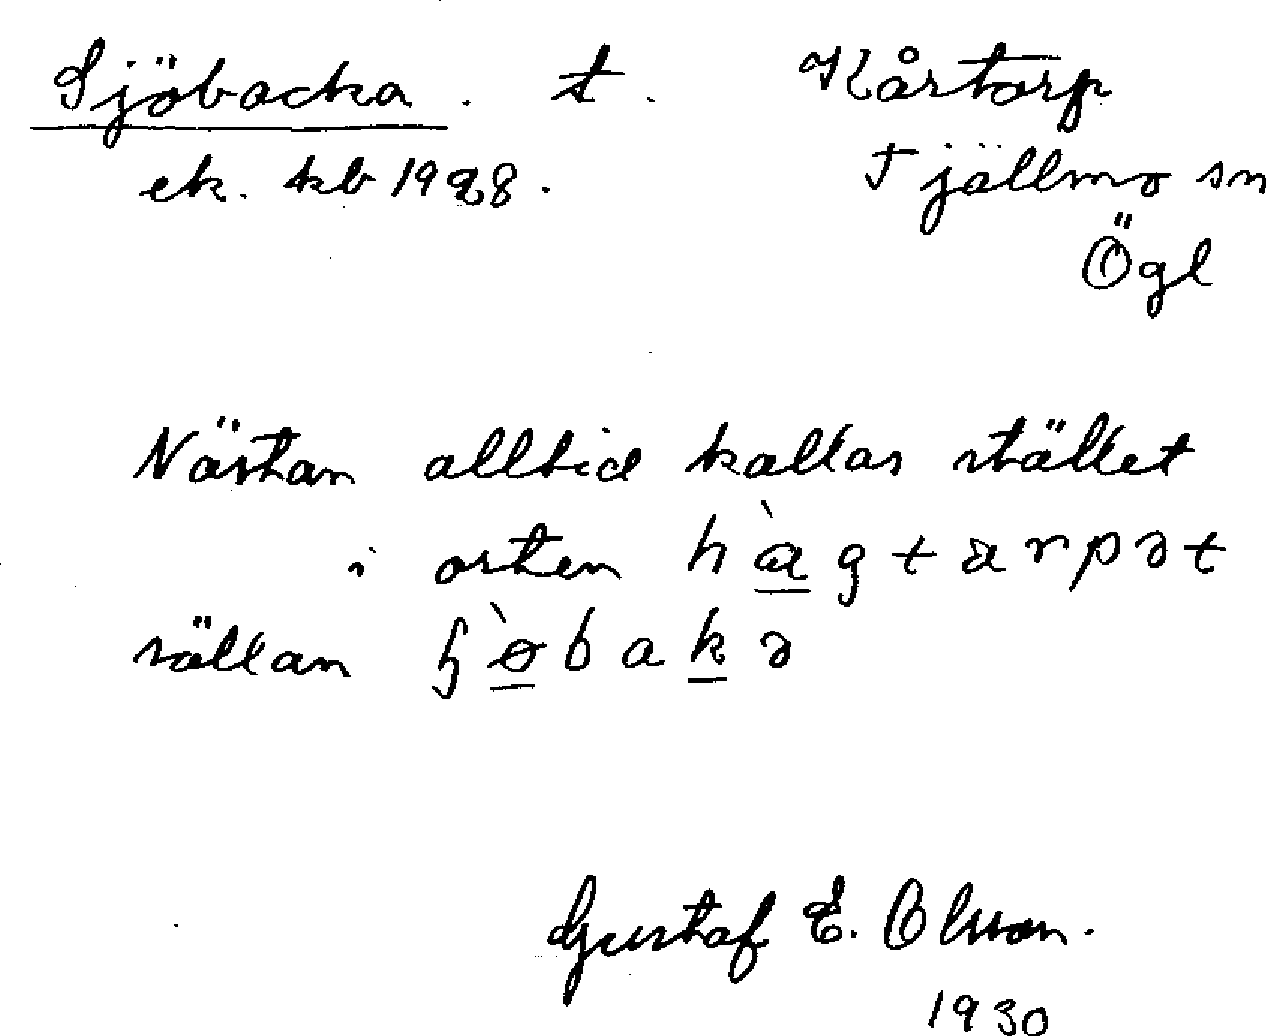 Sjöbacka. t. Kårtorp
ek. kb 1928. Tjällmo sn
Ögl
Nästan alltid kallas stället
i orten hàgtarpət
sällan ɧø̀bakə
Gustaf E. Olsson.
1930